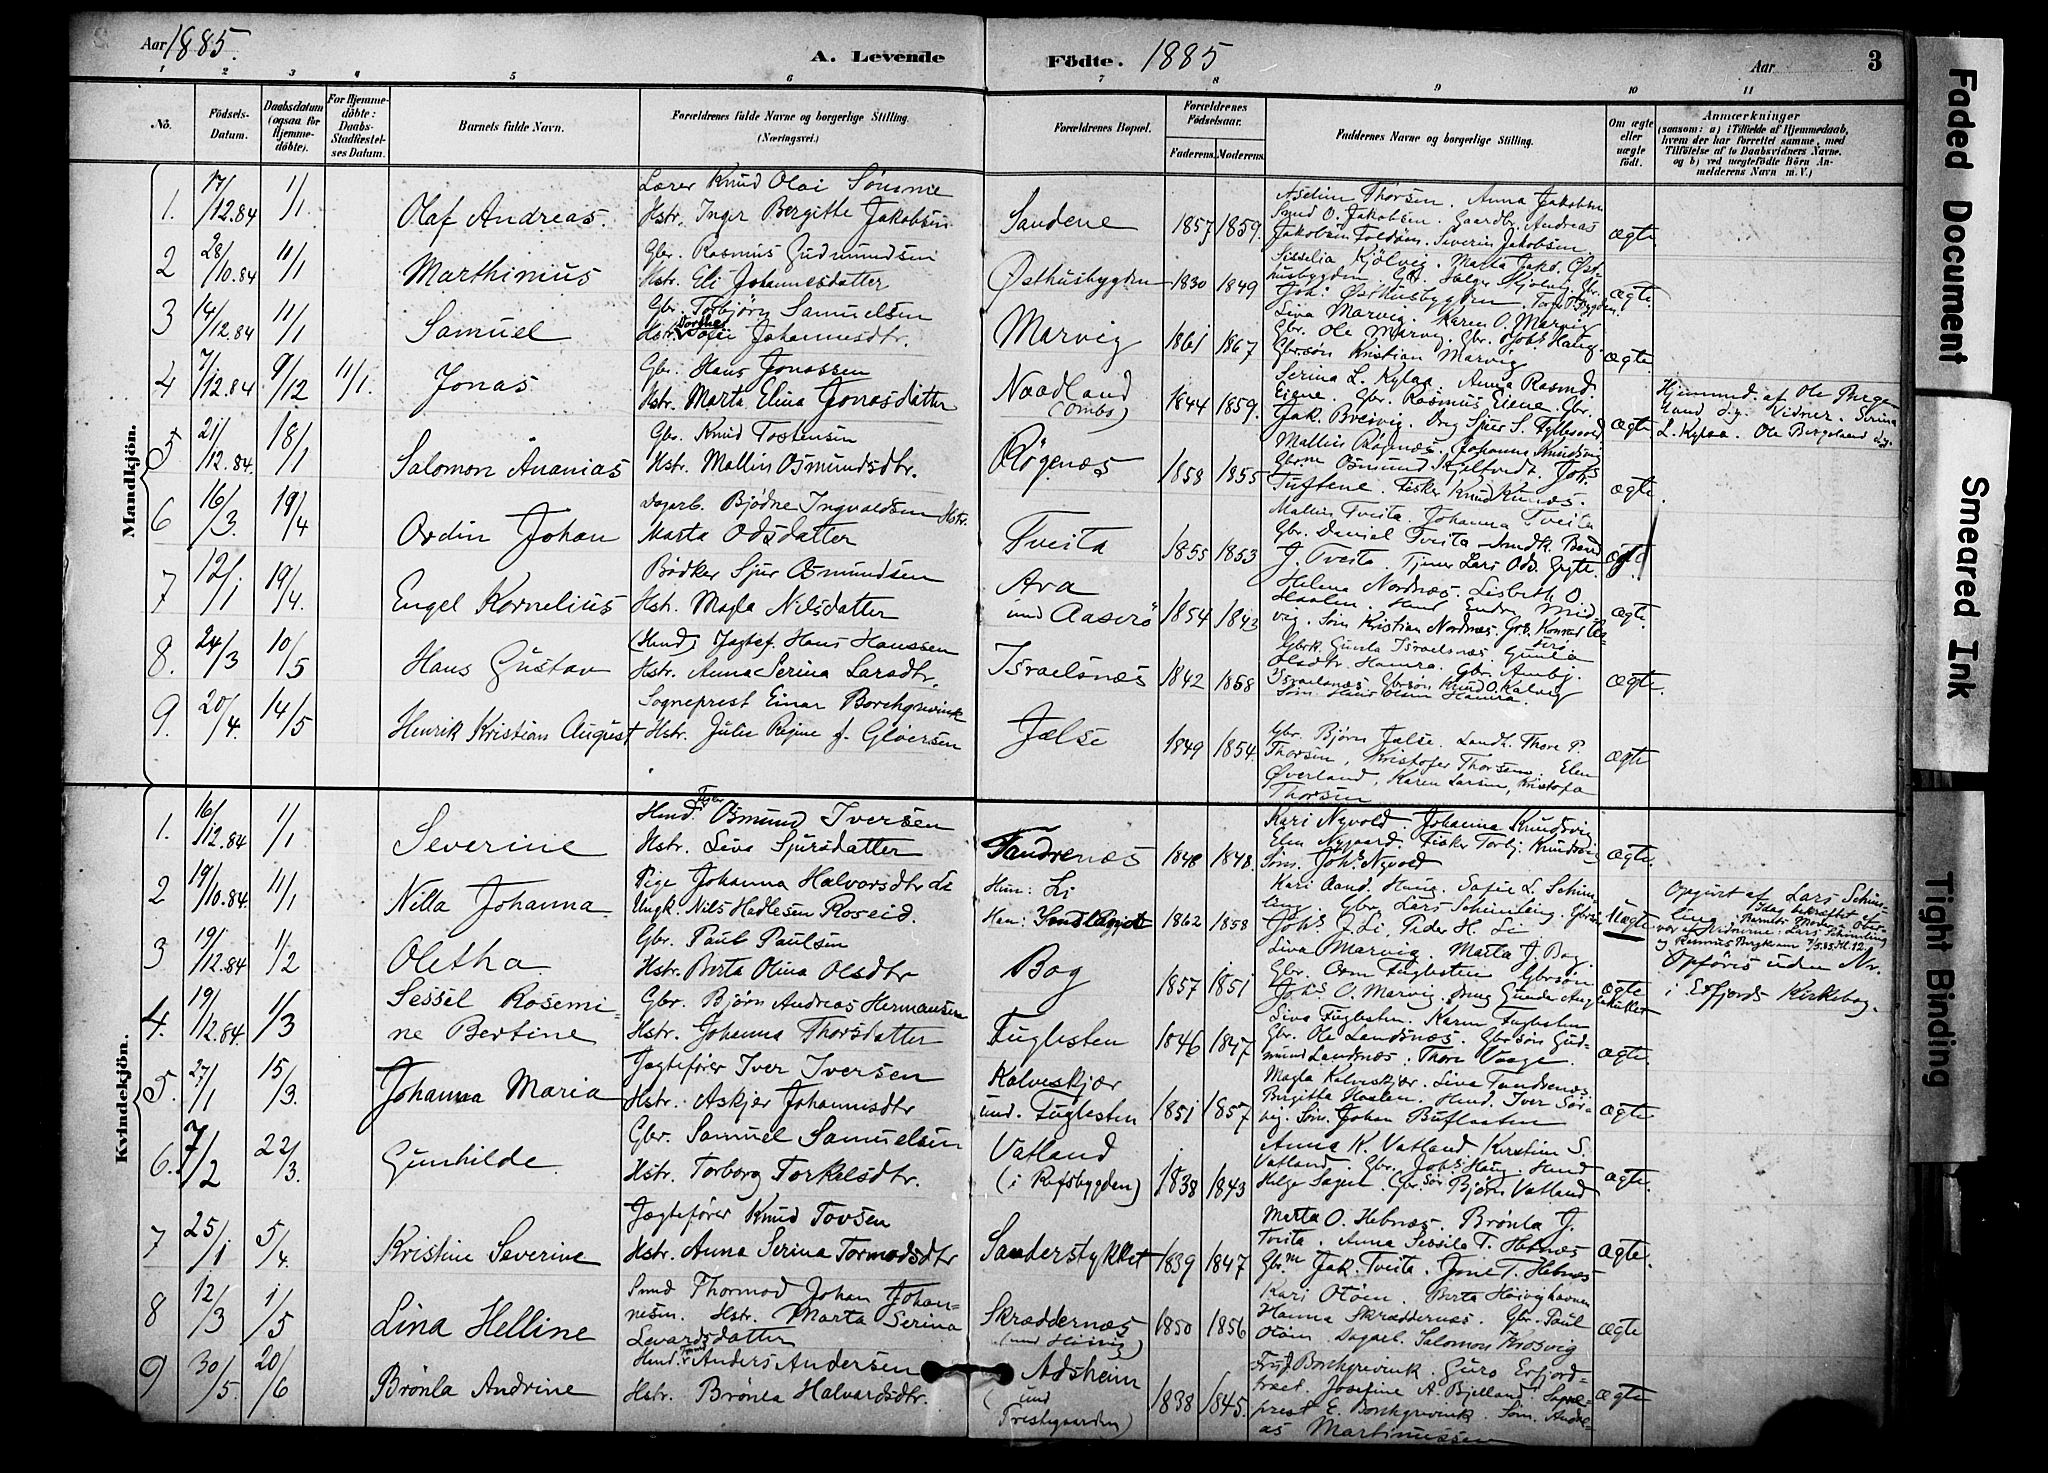 Aar 1885.
A. Levende
Födte. 1885
Aar
3
1 2 3 4 5 6 7 8 9 10 11
No.
Födsels-Datum.
Daabsdatum (ogsaa for Hjemme-döbte).
For Hjemme-döbte: Daabs-Stadfæstel-ses Datum.
Barnets fulde Navn.
Forældrenes fulde Navne og borgerlige Stilling.
(Næringsvei.)
Forældrenes Bopæl.
Forældrenes Födselsaar.
Faderens. Moderens.
Faddernes Navne og borgerlige Stilling.
Om ægte eller uægte födt.
Anmærkninger
(saasom: a) i Tilfælde af Hjemmedaab,
hvem der har forrettet samme, med
Tilföielse af to Daabsvidners Navne,
og b) ved uægtefödte Börn An-
melderens Navn m. V.)
Mandkjön.
1. 17/12.84 1/1 Olaf Andreas.
Lærer Knud Olai Sömme
Hstr. Inger Bergitte Jakobsen
Sandene 1857 1859.
Anna Jakobsen
O. Jakobsen. Gaardb. Andreas
Jakobsen Foldöen. Severin Jakobsen
ægte.
2 28/10.84 11/1 Marthinius
Gbr. Rasmus Gudmundsen
Hstr. Eli Johannesdatter
Østhusbygden 1830 1849
Joh: Østhusbygden
ægte.
3 14/12.84 11/1 Samuel
Gbr. Torbjörn Samuelsen
Hstr. Dorthea Sofie Johannesdtr.
Marvig 1861 1867
Siva Marvig. Karen O. Marvig
Gbr. Ole Marvig. Gbr. Johs Haug.
Gbrsön Kristian Marvig
ægte
4 7/12.84 9/12 11/1. Jonas
Gbr. Hans Jonassen
Hstr. Marta Elina Jonasdatter
Naadland
(Ombo)
1844 1859.
Serina L. Kylaa. Anna Rasmd.
Eiene. Gbr. Rasmus Eiene. Gbr.
Jak. Breivig.
ægte
Hjemmed. af Ole Berge-
land d.y. Vidner. Serina
L. Kylaa. Ole Bergeland d.y.
5 21/12.84. 18/1 Salomon Ananias
Gbr. Knud Tostensen
Hstr. Mallin Osmundsdtr.
Rögenæs 1858 1855
Mallin Rögenæs. Johanna Knudsvig
Tuftene. Fisker Knud
ægte.
6 16/3. 19/4 Ordin Johan
Dagarb. Bjödne Ingvaldsen Hstr.
Marta Odsdatter
Tveita 1855 1853
Mallin Tveita. Johanna Tveita
Gbr. Daniel Tveita
J. Tveita. Tjener Lars
ægte.
7 12/1 19/4. Engel Kornelius
Bödker Sjur Osmundsen
Hstr. Magla Nilsdatter
Ara
und Aaserö
1854 1843
Helena Nordnæs. Lisbeth O.
Haalen. Hmd. Endre Mid-
vig. Sön Kristian Nordnæs. Gbr. Konrad
ægte.
8. 24/3 10/5 Hans Gustav
(Hmd) Jagtef. Hans Hanssen
Hstr. Anna Serina Larsdtr.
Israelsnæs 1842 1858
Gbrk. Gunla Israelsnæs. Gunla
Olsdtr. Hamra. Gbr. Ambj.
Israelsnæs. Gbrsön Knud O. Kalvig
Sön. Hans Olsen Hamra.
ægte.
9. 20/4. 14/5 Henrik Kristian August
Sogneprest Einar Borchgrevink
Hstr. Julie Regine f. Gløersen
Jælse 1849 1854.
Gbr. Björn Jælse. Landh. Thore P.
Thorsen, Kristofer Thorsen. Elen
Øverland, Karen Larsen, Kristofa
Thorsen
ægte
Kvindekjön.
1. 16/12.84 1/1 Severine
Hmd. Fisker Osmund Iversen
Hstr. Siva Sjursdatter
Tandrenæs 1848 1848.
Kari Nyvold. Johanna Knudsvig
Elen Nygaard. Fisker Torbj. Knudsvig
Sön. Johs Nyvold
ægte.
2 19/10.84. 11/1 Nilla Johanna.
Pige Johanna Halvorsdtr Li
Ungk. Nils Hadlesen Roseid.
Hun: Li
Han:
1862 1858
Kari Aand. Haug. Sofie L. Schim-
ling. Gbr. Lars Schimling. Gbrsön
Johs J. Li, Peder H. Li
Uægte
Opgivet af Lars Schim-
ling. Idag bekræftet af
Barnets Moder. Over-
vær. af Vidnerne: Lars Schimling
og Rasmus Bergkum 7/5.85. Kl. 12.
Opføres uden Nr.
i Erfjords Kirkebog.
3 19/12.84 1/2 Oletha.
Gbr. Paul Paulsen
Hstr. Berta Olina Olsdtr
Bog 1857 1851
Siva Marvig. Marta J. Bog.
Gbr. Orm Fuglesten Gbrsön
Johs O. Marvig. Drng Gunder
ægte
4. 19/12.84. 1/3 Sessel Rosemi-
ne Bertine
Gbr. Björn Andreas Hermansen
Hstr. Johanna Thorsdatter
Fuglesten 1846 1847
Siva Fuglesten. Karen Fuglesten
Gbr. Ole Landsnæs. Gbrsön Gud-
mund Landsnæs. Thore Vaage.
ægte.
5. 27/1 15/3. Johanna Maria
Jagtefører Iver Iversen
Hstr. Askjer Johannesdtr
Kalveskjær
und. Fuglesten
1851 1857
Magla Kalveskjær. Siva Tandrenæs
Birgitta Haalen. Hmd. Iver Sör-
vig. Sön. Johan Buflaaten
ægte.
6. 7/2 22/3. Gunhilde.
Gbr. Samuel Samuelsen
Hstr. Torborg Torkelsdtr.
Vatland
(i Refsbygden)
1838 1843
Anna K. Vatland. Kirstine S.
Vatland. Gbr. Johs Haug. Hmd
Helge Saguel. Gbrsön Björn Vatland
ægte.
7 25/1 5/4. Kristine Severine
Jægtefører Knud Tovsen
Hstr. Anna Serina Tormodsdtr
Sanderstykket 1839 1847
Marta O. Hebnæs. Brönla J.
Tveita. Anna Sessila T. Hebnæs
Gbrm Jak. Tveita. Jone T. Hebnæs
ægte.
8 12/3 1/5 Lina Helline
Smed Thormod Johan Johan-
nesen. Hstr. Marta Serina
Levardsdatter
Skræddernæs
(und Höivig)
1850 1856
Kari Otöen. Berta Höivighavnen
Hanna Skræddernæs. Gbr. Paul
Otöen. Salomon Krosvig
ægte
9 30/5. 20/6 Brönla Andrine
Hmd. Anders Andersen
Hstr. Brönla Halvardsdtr.
Adsheim
(und
Prestegaarden)
1838 1845.
Fru Borchgrevink. Guro Erfjord-
Josefine A. Bjelland. Sogne-
prest E. Borchgrevink. Sön. Andre-
as Martinussen
ægte
Faded Document
Smeared Ink
Tight Binding